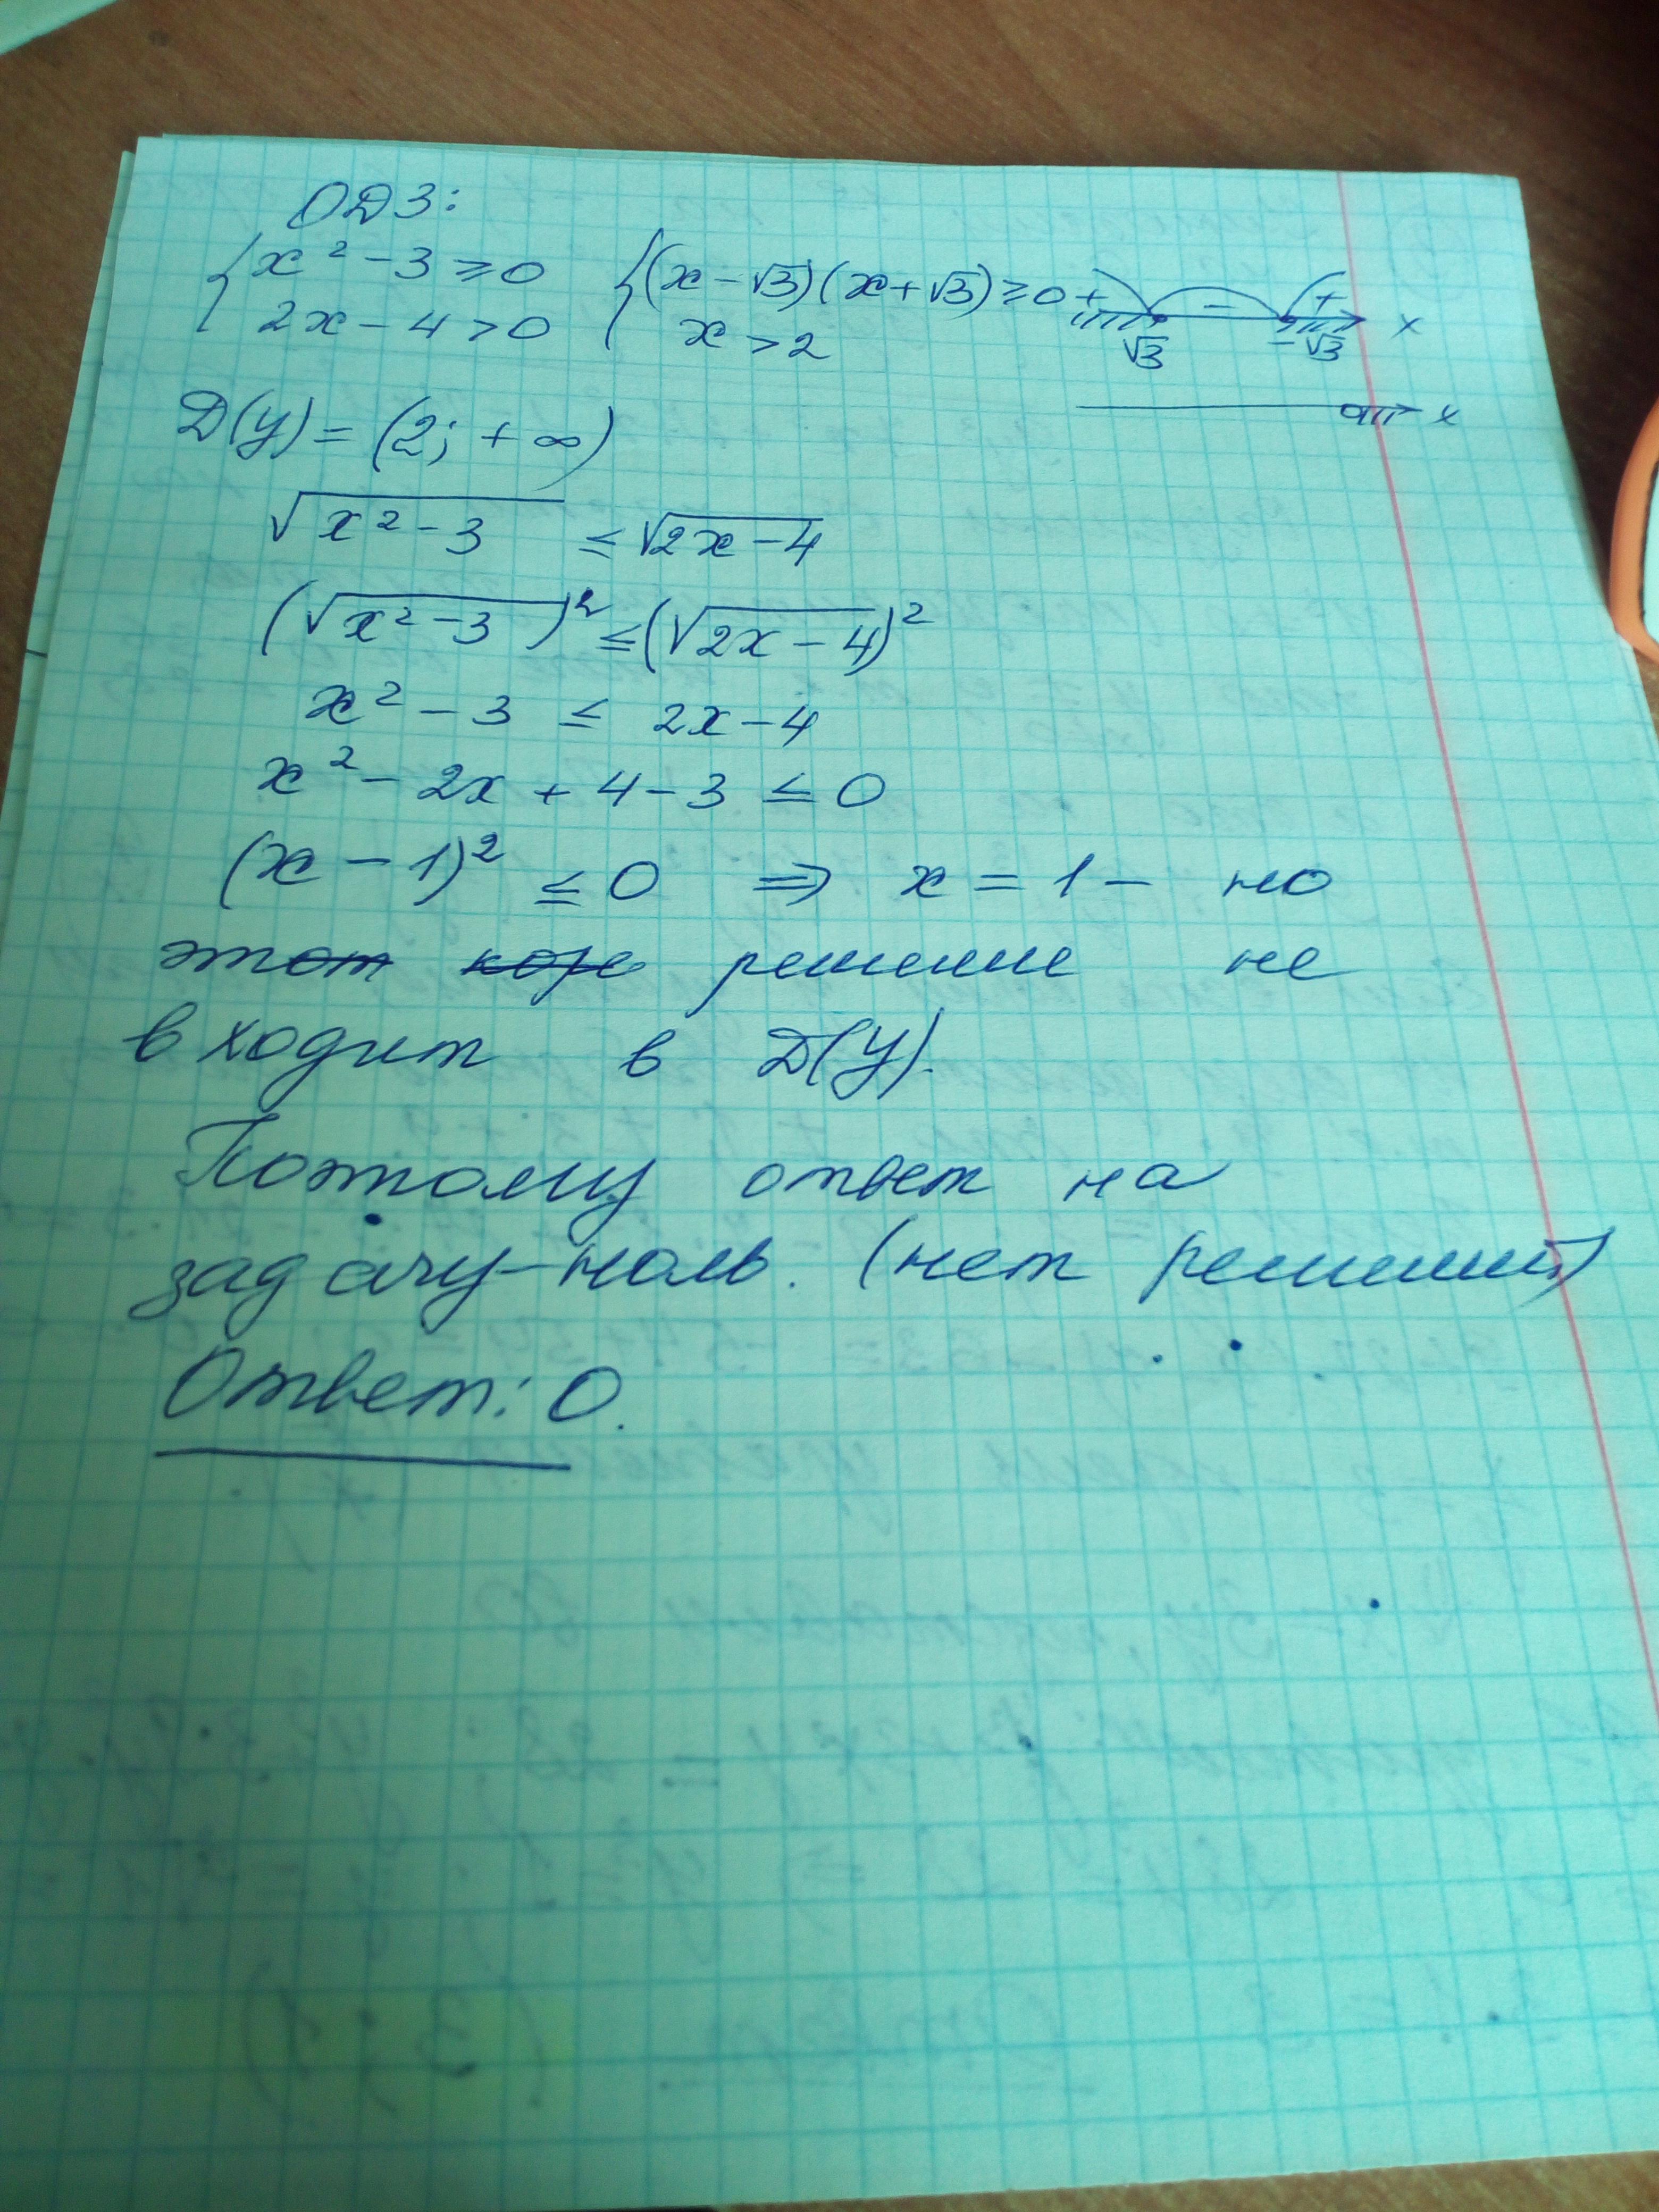 ОДЗ:
{x² - 3 ≥ 0 {(x - √3)(x + √3) ≥ 0 + - + x
2x - 4 > 0 x > 2 √3 -√3
x
D(y) = (2; + ∞)
√x² - 3 ≤ √2x - 4
(√x² - 3)² ≤ (√2x - 4)²
x² - 3 ≤ 2x - 4
x² - 2x + 4 - 3 ≤ 0
(x - 1)² ≤ 0 ⇒ x = 1 - но
этот коре решение не
входит в D(y).
Потому ответ на
задачу - ноль. (нет решений)
Ответ: 0.